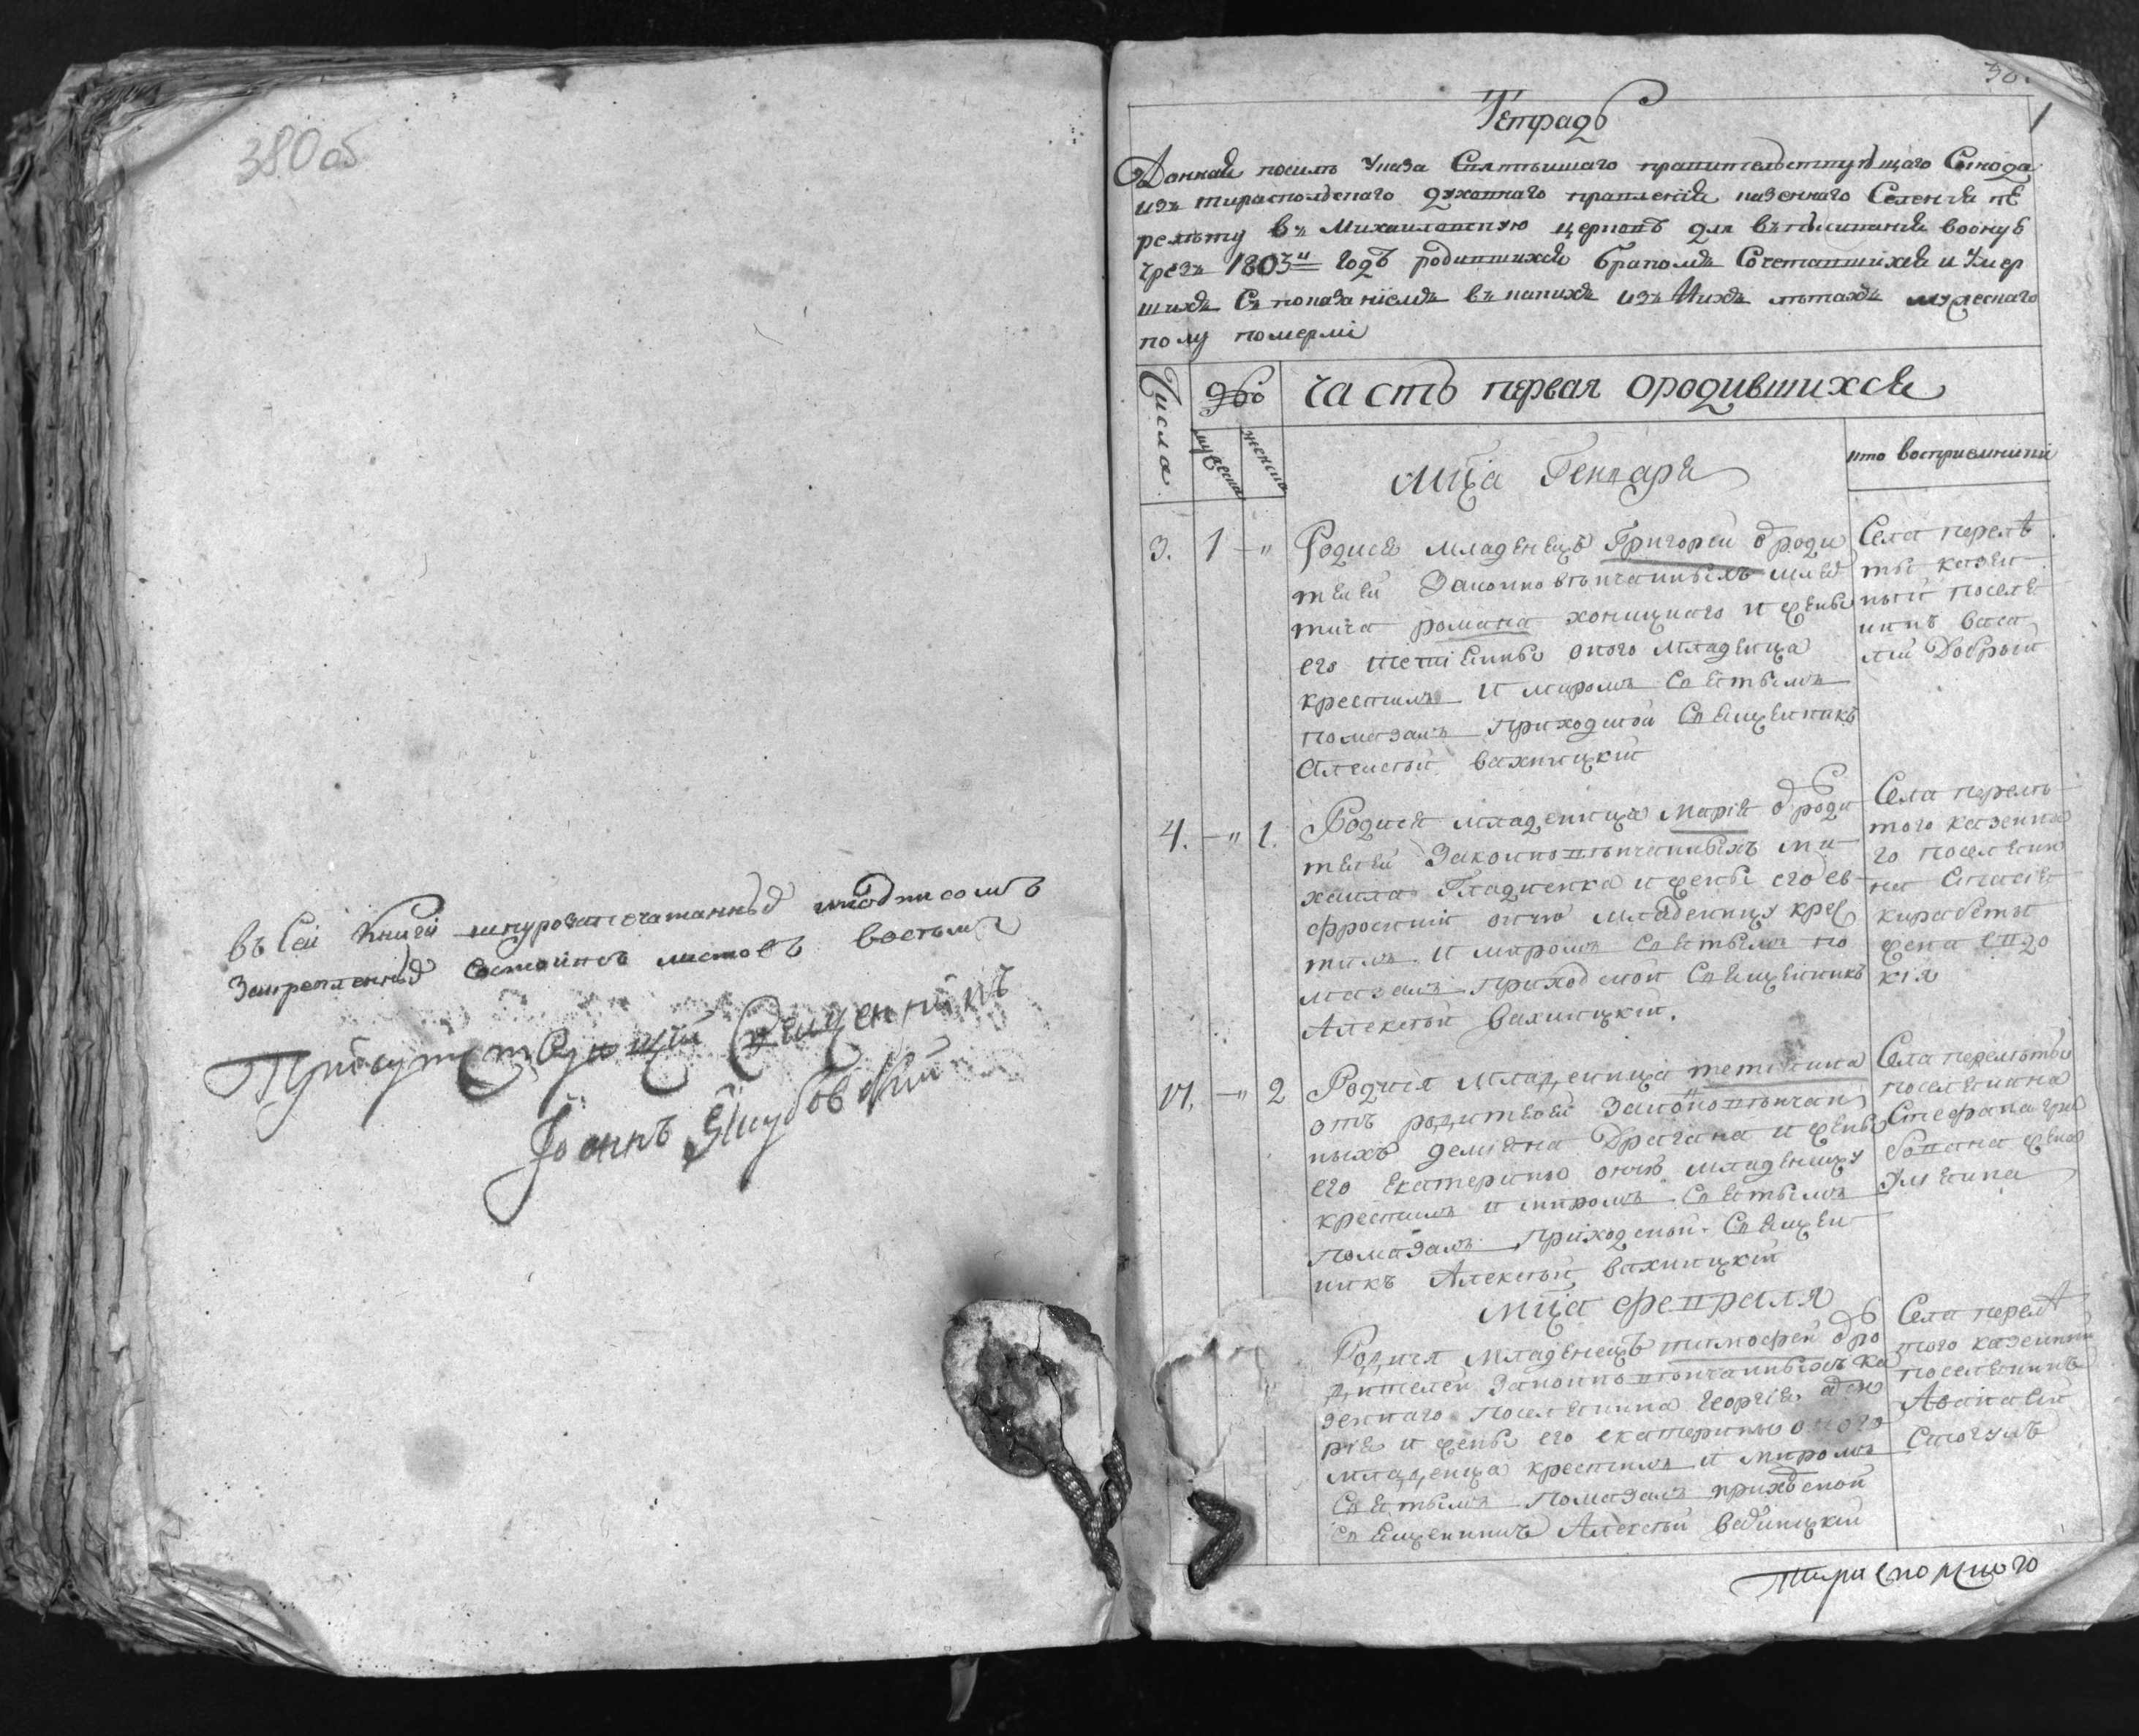 380 об
въ Сей книги шнурозапечатанныя и подписомъ
Закрепленныя Состоитъ листовъ восемь
Присутствующій Священникъ
Іоаннъ Якубовскій
1
Тетрадь
Данная посилѣ Указа Святѣйшаго правительствующаго Сѵнода
изъ тираспольскаго духовнаго правленія казеннаго Селенія пе
релѣту въ Михаиловскую церковь для вписыванія воону
чрезъ 1803й годъ родившихся бракомъ Сочетавшихся и умер
шихъ Съ показаніемъ въ какихъ изъ нихъ лѣтахъ мужескаго
полу померли
Числа
часть первая ородившихся
мужеска
женска
мц҃а Генваря
кто восприемники
3. 1 - "
Родися младенецъ Григорей ѿ роди
телей Законновѣнчанныхъ
Романа хоницкаго и жены
его оного младенца
крестилъ и миромъ Святымъ
помазалъ Приходской Священникъ
Алексѣй
Села перелѣ
ты казен
ный поселя
нинъ Васи
лій Добрый
4. - " 1.
Родися младеница Марія ѿ роди
телей Законновѣнчанныхъ ми
хаила Гладченка и жены его ев
фросиніи оную младеницу крес
тилъ и миромъ Святымъ по
мазалъ приходской Священникъ
Алексѣй
Села перелѣ
того казенна
го поселян
на
жена Евдо
кія
- " 2
Родися младеница тетіяна
отъ родителей Законновѣнчан
ныхъ демяна Драгана и жены
его Екатерины оную младеницу
крестилъ и миромъ Святымъ
помазалъ Приходской Священ
никъ Алексѣй
Села перелѣты
поселянина
Стефана
жена
Уляна
мц҃а февраля
Родися младенецъ тимофей ѿ ро
дителей Законновѣнчанныхъ ка
зеннаго поселянина Георгія
и жены его екатерины оного
младенца крестилъ и миромъ
Святымъ помазалъ приходской
Священникъ Алексѣй
Села перелѣ
того казенный
поселянинъ
Аѳанасій
Стогулъ